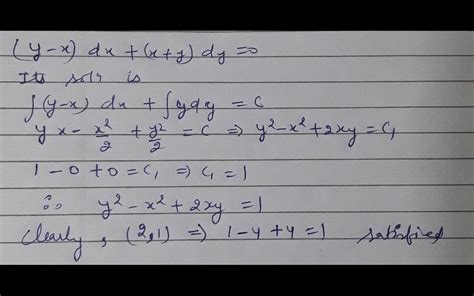 (y-x) dx + (x+y) dy = 0
Its soln is
∫(y-x) dx + ∫ydy = C
yx - x²/2 + y²/2 = C ⇒ y²-x²+2xy = C₁
1-0+0 = C₁ ⇒ C₁ = 1
∴ y²-x²+2xy = 1
Clearly, (2,1) ⇒ 1-4+4 = 1 satisfied